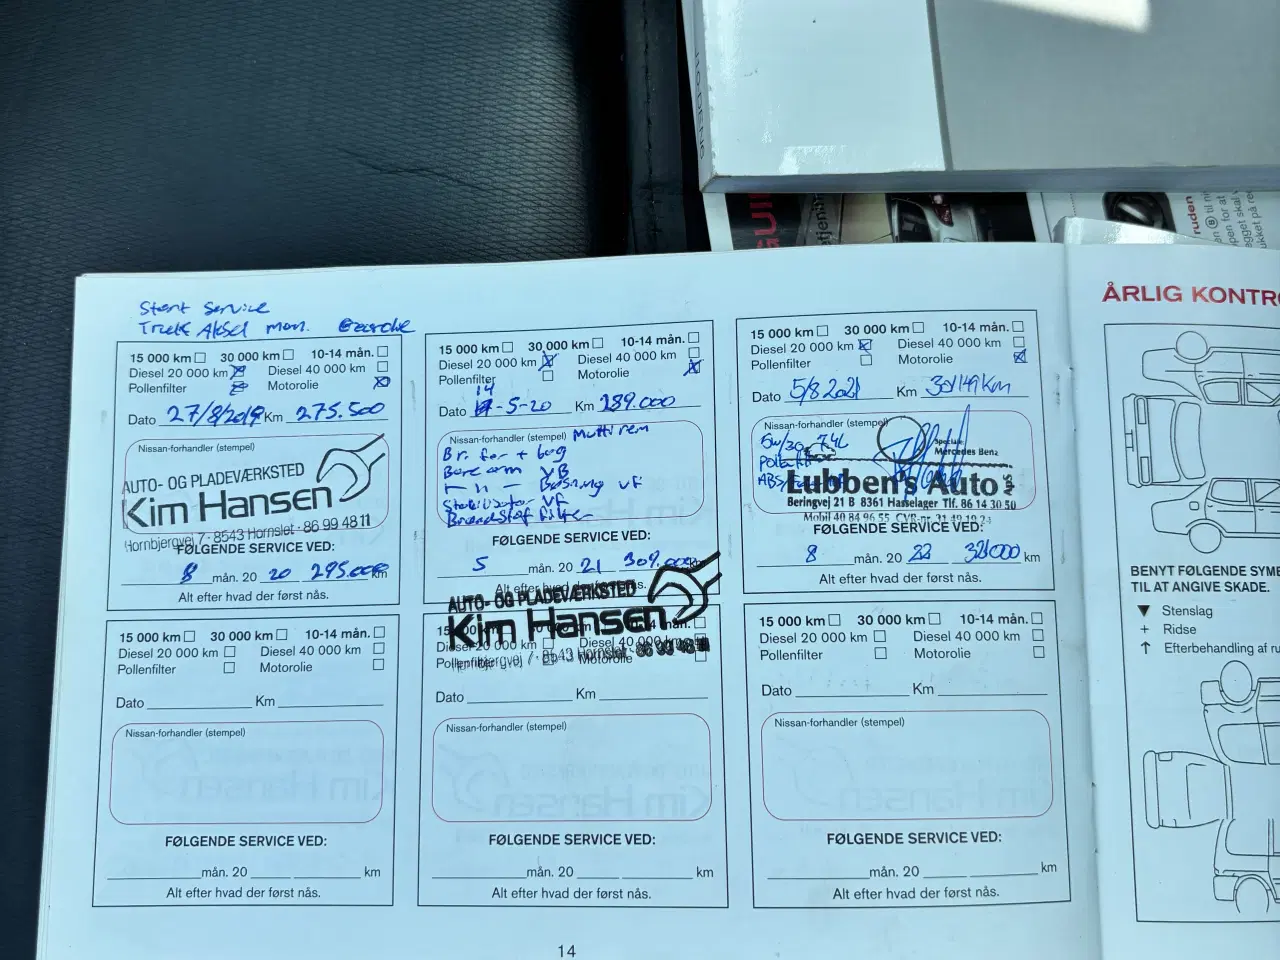 NORDENS
GUII
tjening
ruden
Stort Service
Træk Aksel man.
15 000 km 30 000 km 10-14 mån.
Diesel 20 000 km Diesel 40 000 km
Pollenfilter Motorolie
Dato 27/8/2019 Km 275.500
Nissan-forhandler (stempel)
AUTO- OG PLADEVÆRKSTED
Kim Hansen
Hornbjergvej 7 · 8543 Hornslet · 86 99 48 11
FØLGENDE SERVICE VED:
8 mån. 20 20 295.000 km
Alt efter hvad der først nås.
15 000 km 30 000 km 10-14 mån.
Diesel 20 000 km Diesel 40 000 km
Pollenfilter Motorolie
14
Dato -5-20 Km 289.000
Nissan-forhandler (stempel) Multirem
Br. for + bag
Bære arm VB
- 11 - Bøsning VF
Stabilisator VF
Brændstof filter
FØLGENDE SERVICE VED:
5 mån. 20 21 309.000 km
Alt efter hvad der først nås.
AUTO- OG PLADEVÆRKSTED
Kim Hansen
Hornbjergvej 7 · 8543 Hornslet · 86 99 48 11
15 000 km 30 000 km 10-14 mån.
Diesel 20 000 km Diesel 40 000 km
Pollenfilter Motorolie
Dato 5/8 2021 Km 301149 km
Nissan-forhandler (stempel)
5w/30 7,4L
Speciale
Mercedes Benz
Lubben's Auto A/S
Beringvej 21 B 8361 Hasselager Tlf. 86 14 30 50
Mobil 40 84 96 55 CVR-nr.
FØLGENDE SERVICE VED:
8 mån. 20 22 321000 km
Alt efter hvad der først nås.
15 000 km 30 000 km 10-14 mån.
Diesel 20 000 km Diesel 40 000 km
Pollenfilter Motorolie
Dato Km
Nissan-forhandler (stempel)
FØLGENDE SERVICE VED:
mån. 20 km
Alt efter hvad der først nås.
15 000 km 30 000 km 10-14 mån.
Diesel 20 000 km Diesel 40 000 km
Pollenfilter Motorolie
Dato Km
Nissan-forhandler (stempel)
FØLGENDE SERVICE VED:
mån. 20 km
Alt efter hvad der først nås.
15 000 km 30 000 km 10-14 mån.
Diesel 20 000 km Diesel 40 000 km
Pollenfilter Motorolie
Dato Km
Nissan-forhandler (stempel)
FØLGENDE SERVICE VED:
mån. 20 km
Alt efter hvad der først nås.
14
ÅRLIG KONTRO
BENYT FØLGENDE SYME
TIL AT ANGIVE SKADE.
▼ Stenslag
+ Ridse
↑ Efterbehandling af ru